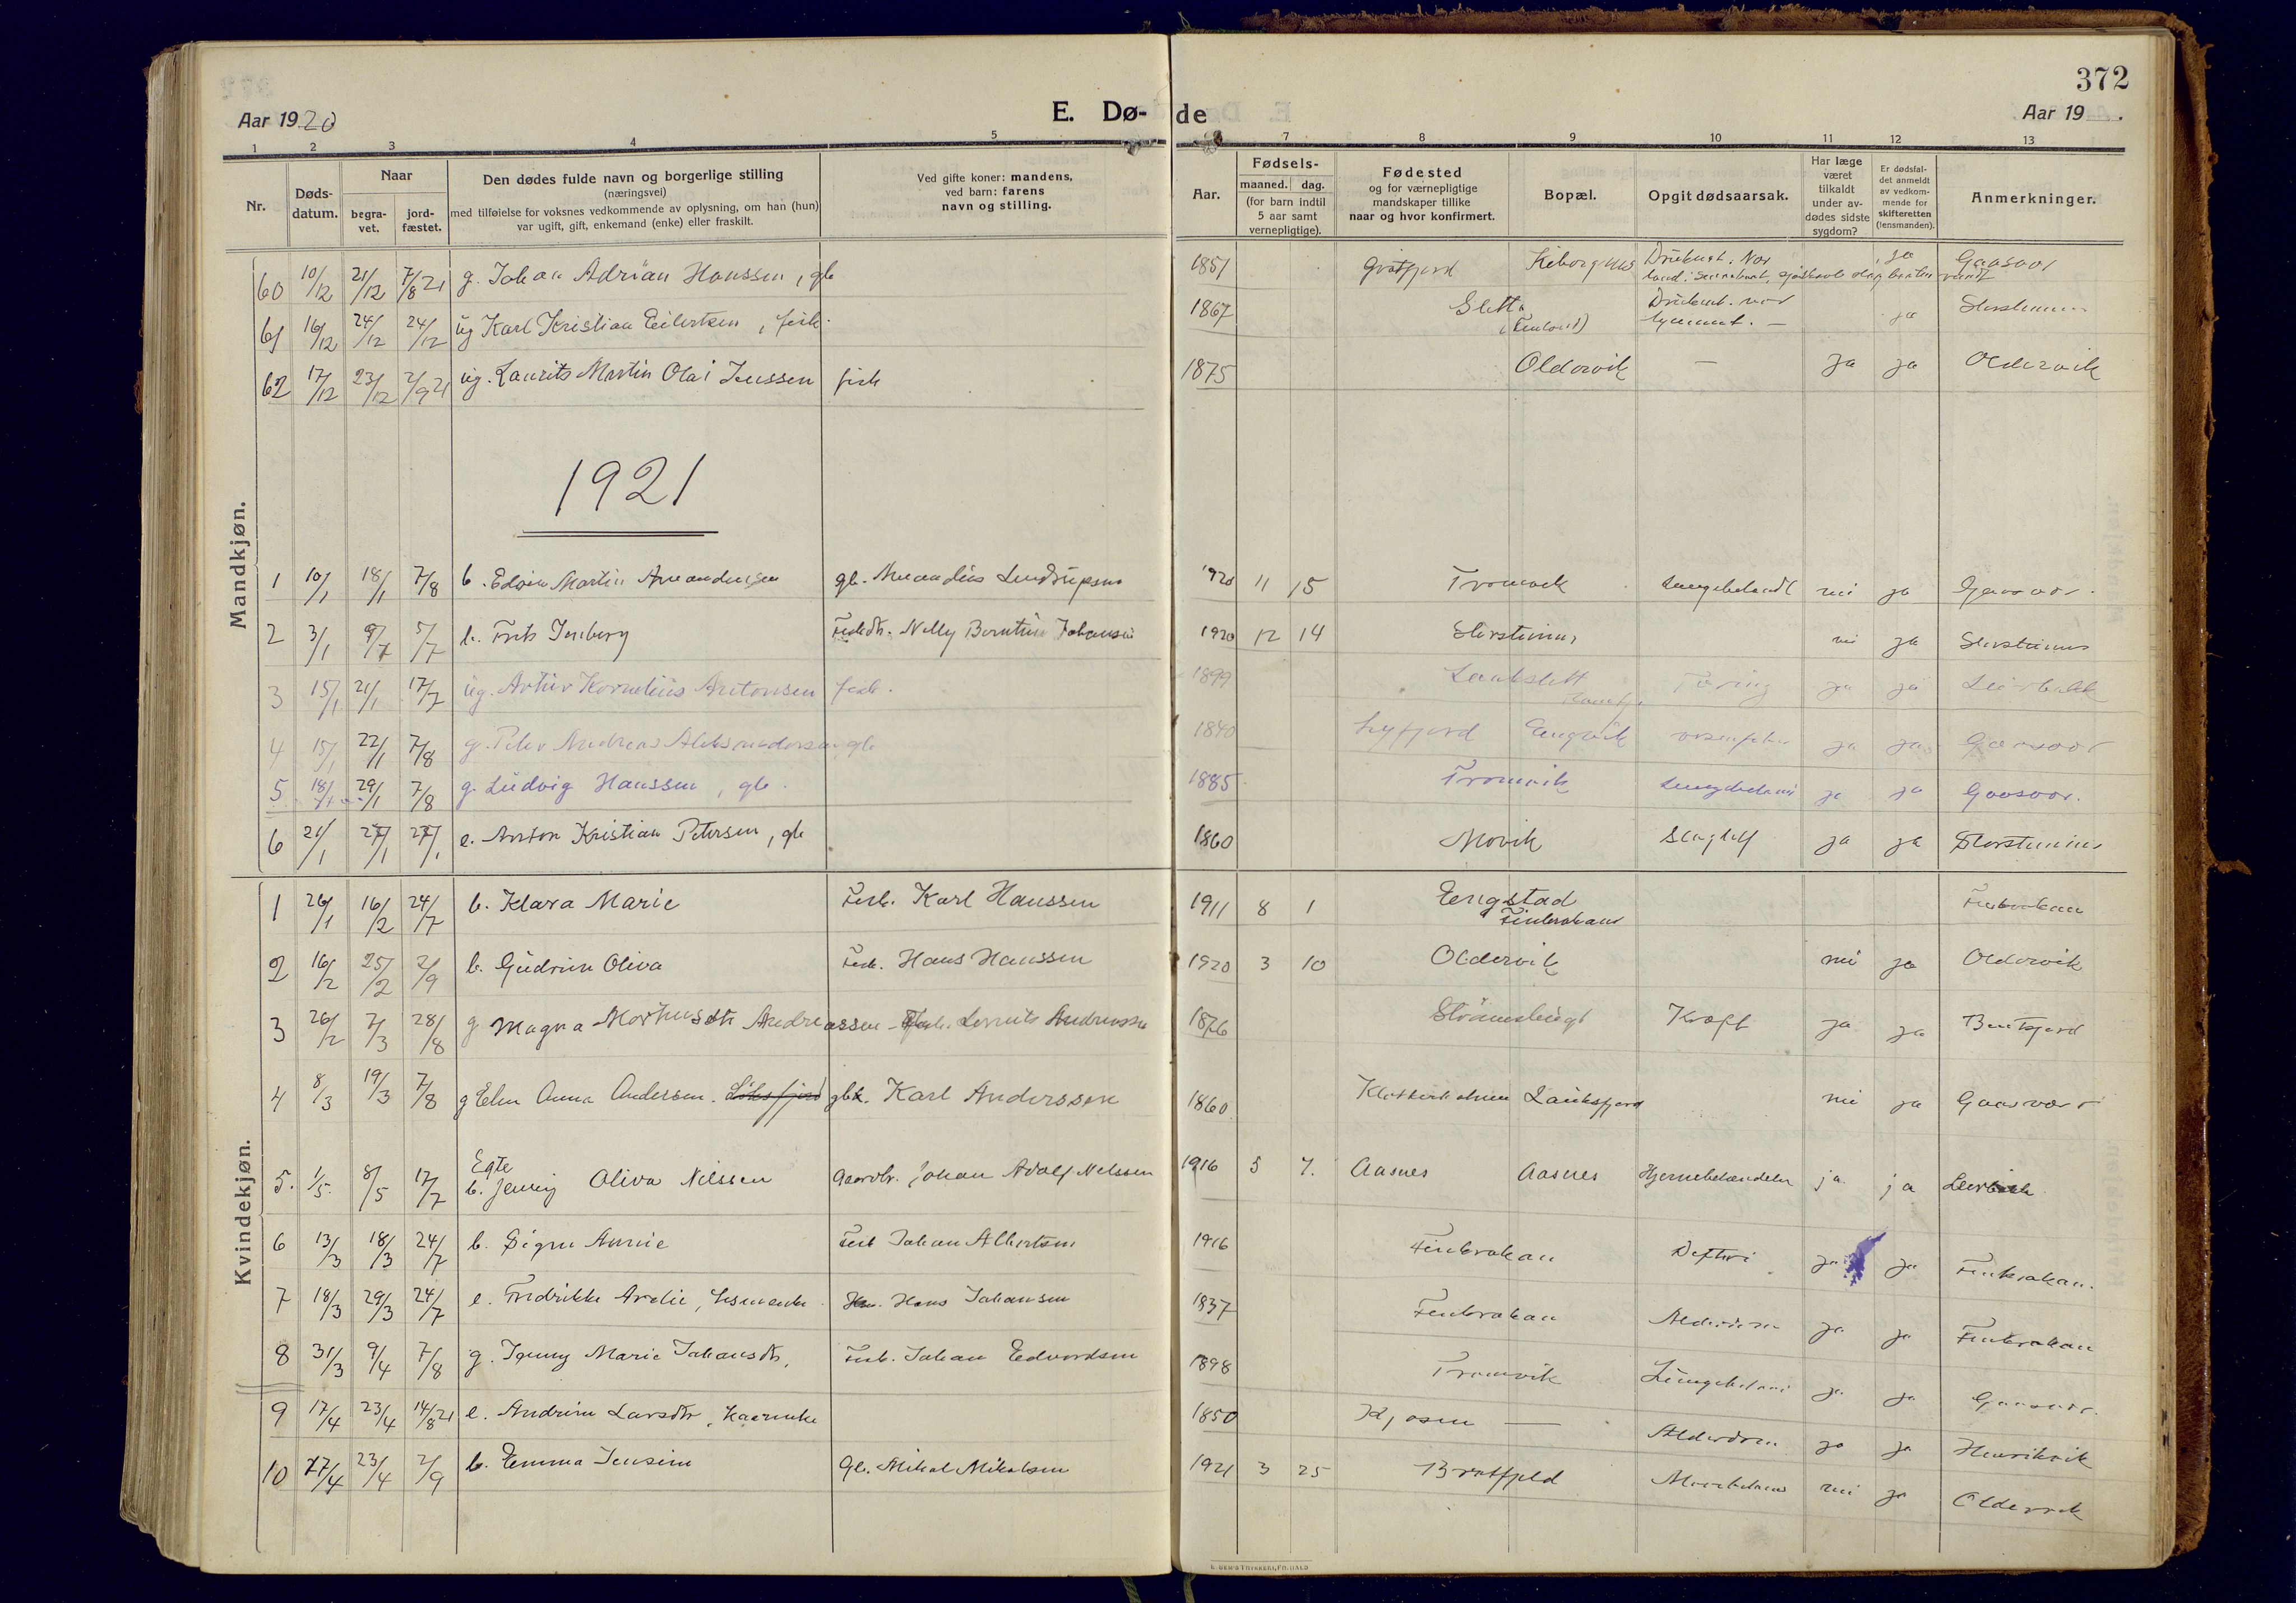 372
Aar 1920
E. Dø-
de
Aar 19 .
1 2 3 4 5 6 7 8 9 10 11 12 13
Nr.
Døds-
datum.
Naar
begra-
vet.
jord-
fæstet.
Den dødes fulde navn og borgerlige stilling
(næringsvei)
med tilføielse for voksnes vedkommende av oplysning, om han (hun)
var ugift, gift, enkemand (enke) eller fraskilt.
Ved gifte koner: mandens,
ved barn: farens
navn og stilling.
Aar.
Fødsels-
maaned. dag.
(for barn indtil
5 aar samt
vernepligtige).
Fødested
og for værnepligtige
mandskaper tillike
naar og hvor konfirmert.
Bopæl.
Opgit dødsaarsak.
Har læge
været
tilkaldt
under av-
dødes sidste
sygdom?
Er dødsfal-
det anmeldt
av vedkom-
mende for
skifteretten
(lensmanden).
Anmerkninger.
Mandkjøn.
60 10/12 21/12 7/8 21 g. Johan Adrian Hanssen, gb 1857 Grøtfjord ja Gaasvær
61 16/12 24/12 24/12 ug Karl Kristian Eilertsen, fisk. 1867 Sletta ja Storsteinnes
62 17/12 23/12 2/9 21 ug. Laurits Martin Olai Jenssen fisk 1875 Oldervik — ja ja Oldervik
1921
1 10/1 18/1 7/8 b. Edvin Martin Amandussen gb. Amandus 1920 11 15 Tromvik Lungebetændt nei ja Gaasvær.
2 3/1 9/7 5/7 b. Frits Isenberg Nelly Berntine Johansen 1920 12 14 Storsteinnes nei ja Storsteinnes
3 15/1 21/1 17/7 ug. Artur Kornelius Antonsen fisk. 1899 Tæring ja ja Leirbakk
4 15/1 22/1 7/8 g. Peder Andreas Aleksandersen gb 1840 Lyfjord Engvik ja ja Gaasvær
5 18/1 29/1 7/8 g. Ludvig Hanssen, gb. 1885 Tromvik Lungebetænd ja ja Gaasvær.
6 21/1 27/1 27/1 e. Anton Kristian Petersen, gb 1860 Movik Slagtilf ja ja Storsteinnes
Kvindekjøn.
1 26/1 16/2 24/7 b. Klara Marie Fisk. Karl Hanssen 1911 8 1 Engstad
Finkrokan Finkrokan
2 16/2 25/2 2/9 b. Gudrun Oliva Fisk. Hans Hanssen 1920 3 10 Oldervik nei ja Oldervik
3 26/2 7/3 28/8 g Magna Andreassen - Fisk. Laurits Andreassen 1876 Kræft ja ja Bentsjord
4 8/3 19/3 7/8 g Elen Anna Andersen. gb. Karl Anderssen 1860 Lauksfjord nei ja Gaasvær
5. 1/5. 8/5 17/7 Egte
b. Jenny Oliva Nilssen Gaardbr. Johan Adolf Nilssen 1916 5 7. Aasnes Aasnes Hjernebetændelse ja ja Leirbak
6 13/3 18/3 24/7 b. Signe Annie Fisk Johan Albertsen 1916 Finkrokan Difteri ja ja Finkrokan.
7 18/3 29/3 24/7 e. Fredrikke Amalie, Hans Johansen 1837 Finkrokan Alderdom ja ja Finkrokan
8 31/3 9/4 7/8 g. Jenny Marie Johansdtr, Fisk. Johan Edvardsen 1898 Tromvik Lungebetænd ja ja Gaasvær.
9 17/4 23/4 14/8 21 e. Andrine Larsdtr, Kaarenke 1850 Kjosen — Alderdom ja ja Henrikvik
10 17/4 23/4 2/9 b. Emma Jensine Gb. Mikal Mikalsen 1921 3 25 Bratfjeld nei ja Oldervik